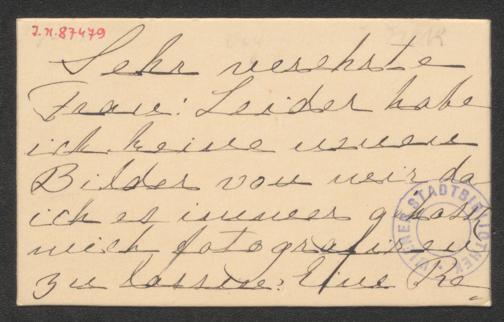 J.N. 87479
Sehr verehrte
Frau! Leider habe
ich keine neuen
Bilder von mir da
ich es immer
mich fotografieren
zu lassen. Eine Re-
WIENER STADTBIBLIOTHEK